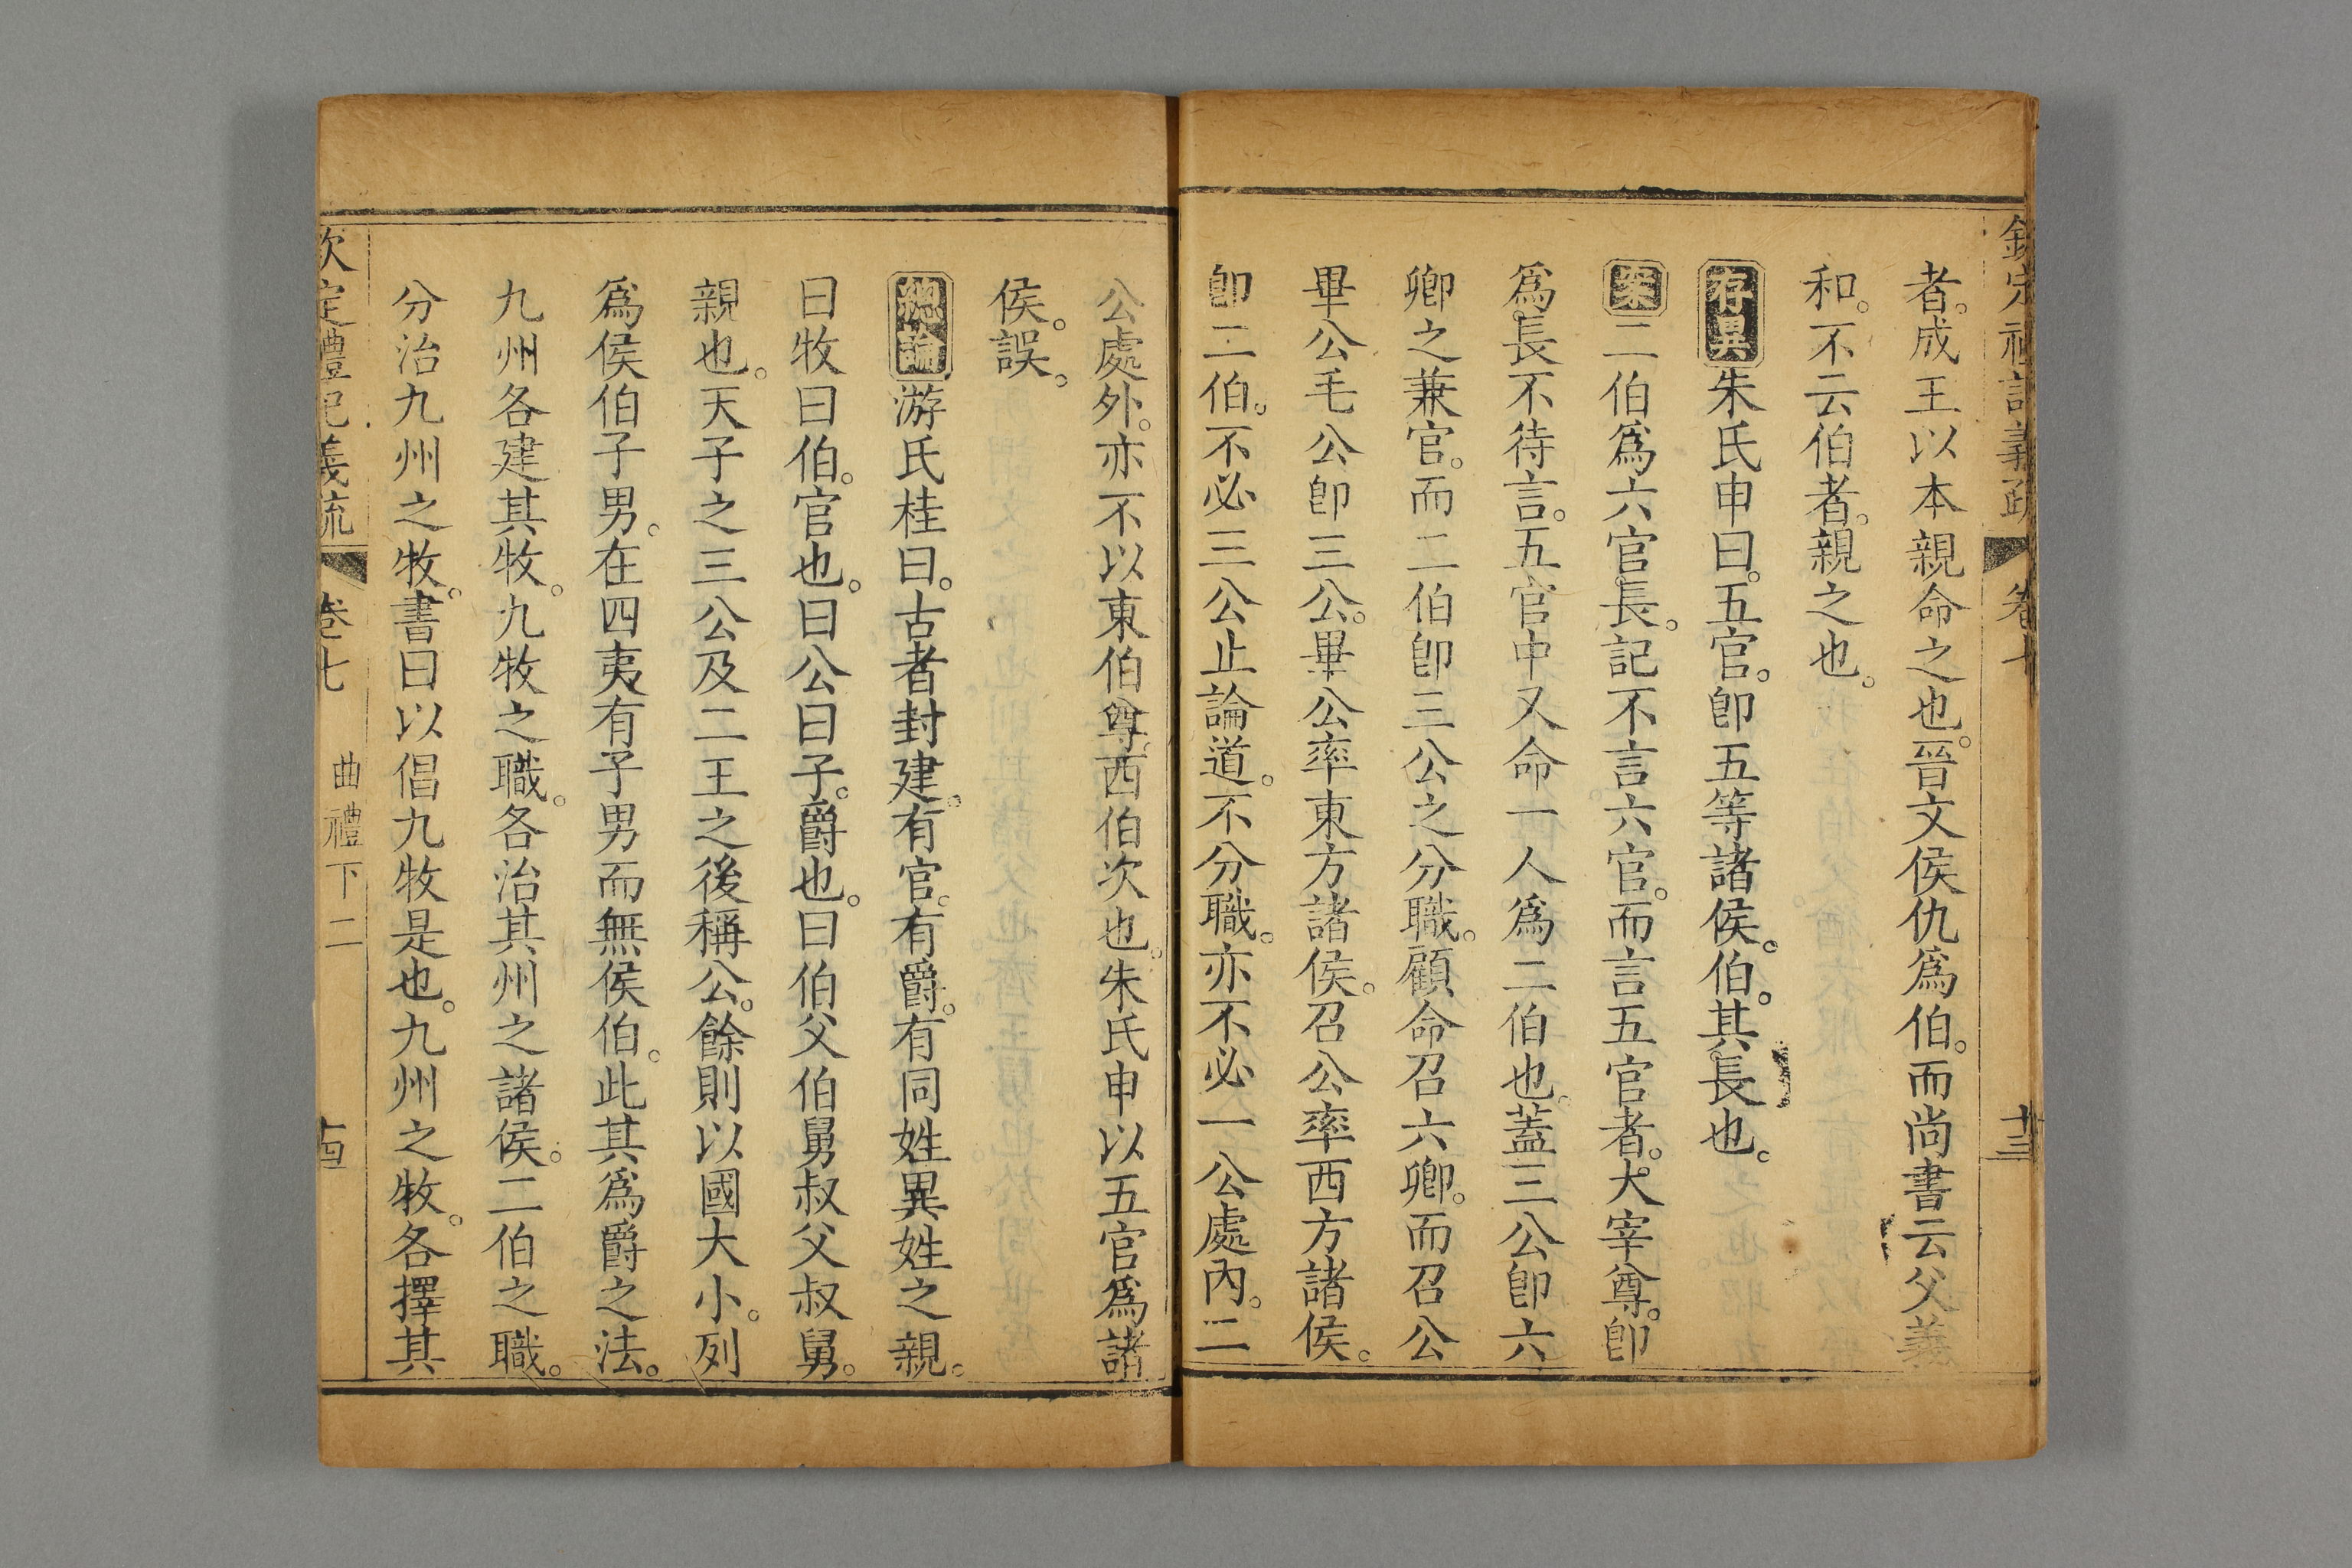 欽定禮記義疏 卷七 十三
者。成王以本親命之也。晉文侯仇爲伯。而尚書云父義
和。不云伯者。親之也。
存異朱氏申曰。五官。卽五等諸侯。伯。其長也。
案二伯爲六官長。記不言六官。而言五官者。大宰尊。卽
爲長。不待言。五官中又命一人爲二伯也。蓋三公卽六
卿之兼官。而二伯卽三公之分職。顧命召六卿。而召公
畢公毛公卽三公。畢公率東方諸侯。召公率西方諸侯。
卽二伯。不必三公止論道。不分職。亦不必一公處內。二
公處外。亦不以東伯尊。西伯次也。朱氏申以五官爲諸
侯。誤。
總論游氏桂曰。古者封建。有官。有爵。有同姓異姓之親。
曰牧曰伯。官也。曰公曰子。爵也。曰伯父伯舅叔父叔舅。
親也。天子之三公及二王之後稱公。餘則以國大小。列
爲侯伯子男。在四夷有子男而無侯伯。此其爲爵之法。
九州各建其牧。九牧之職。各治其州之諸侯。二伯之職。
分治九州之牧。書曰以倡九牧是也。九州之牧。各擇其
欽定禮記義疏 卷七 曲禮下二 十四